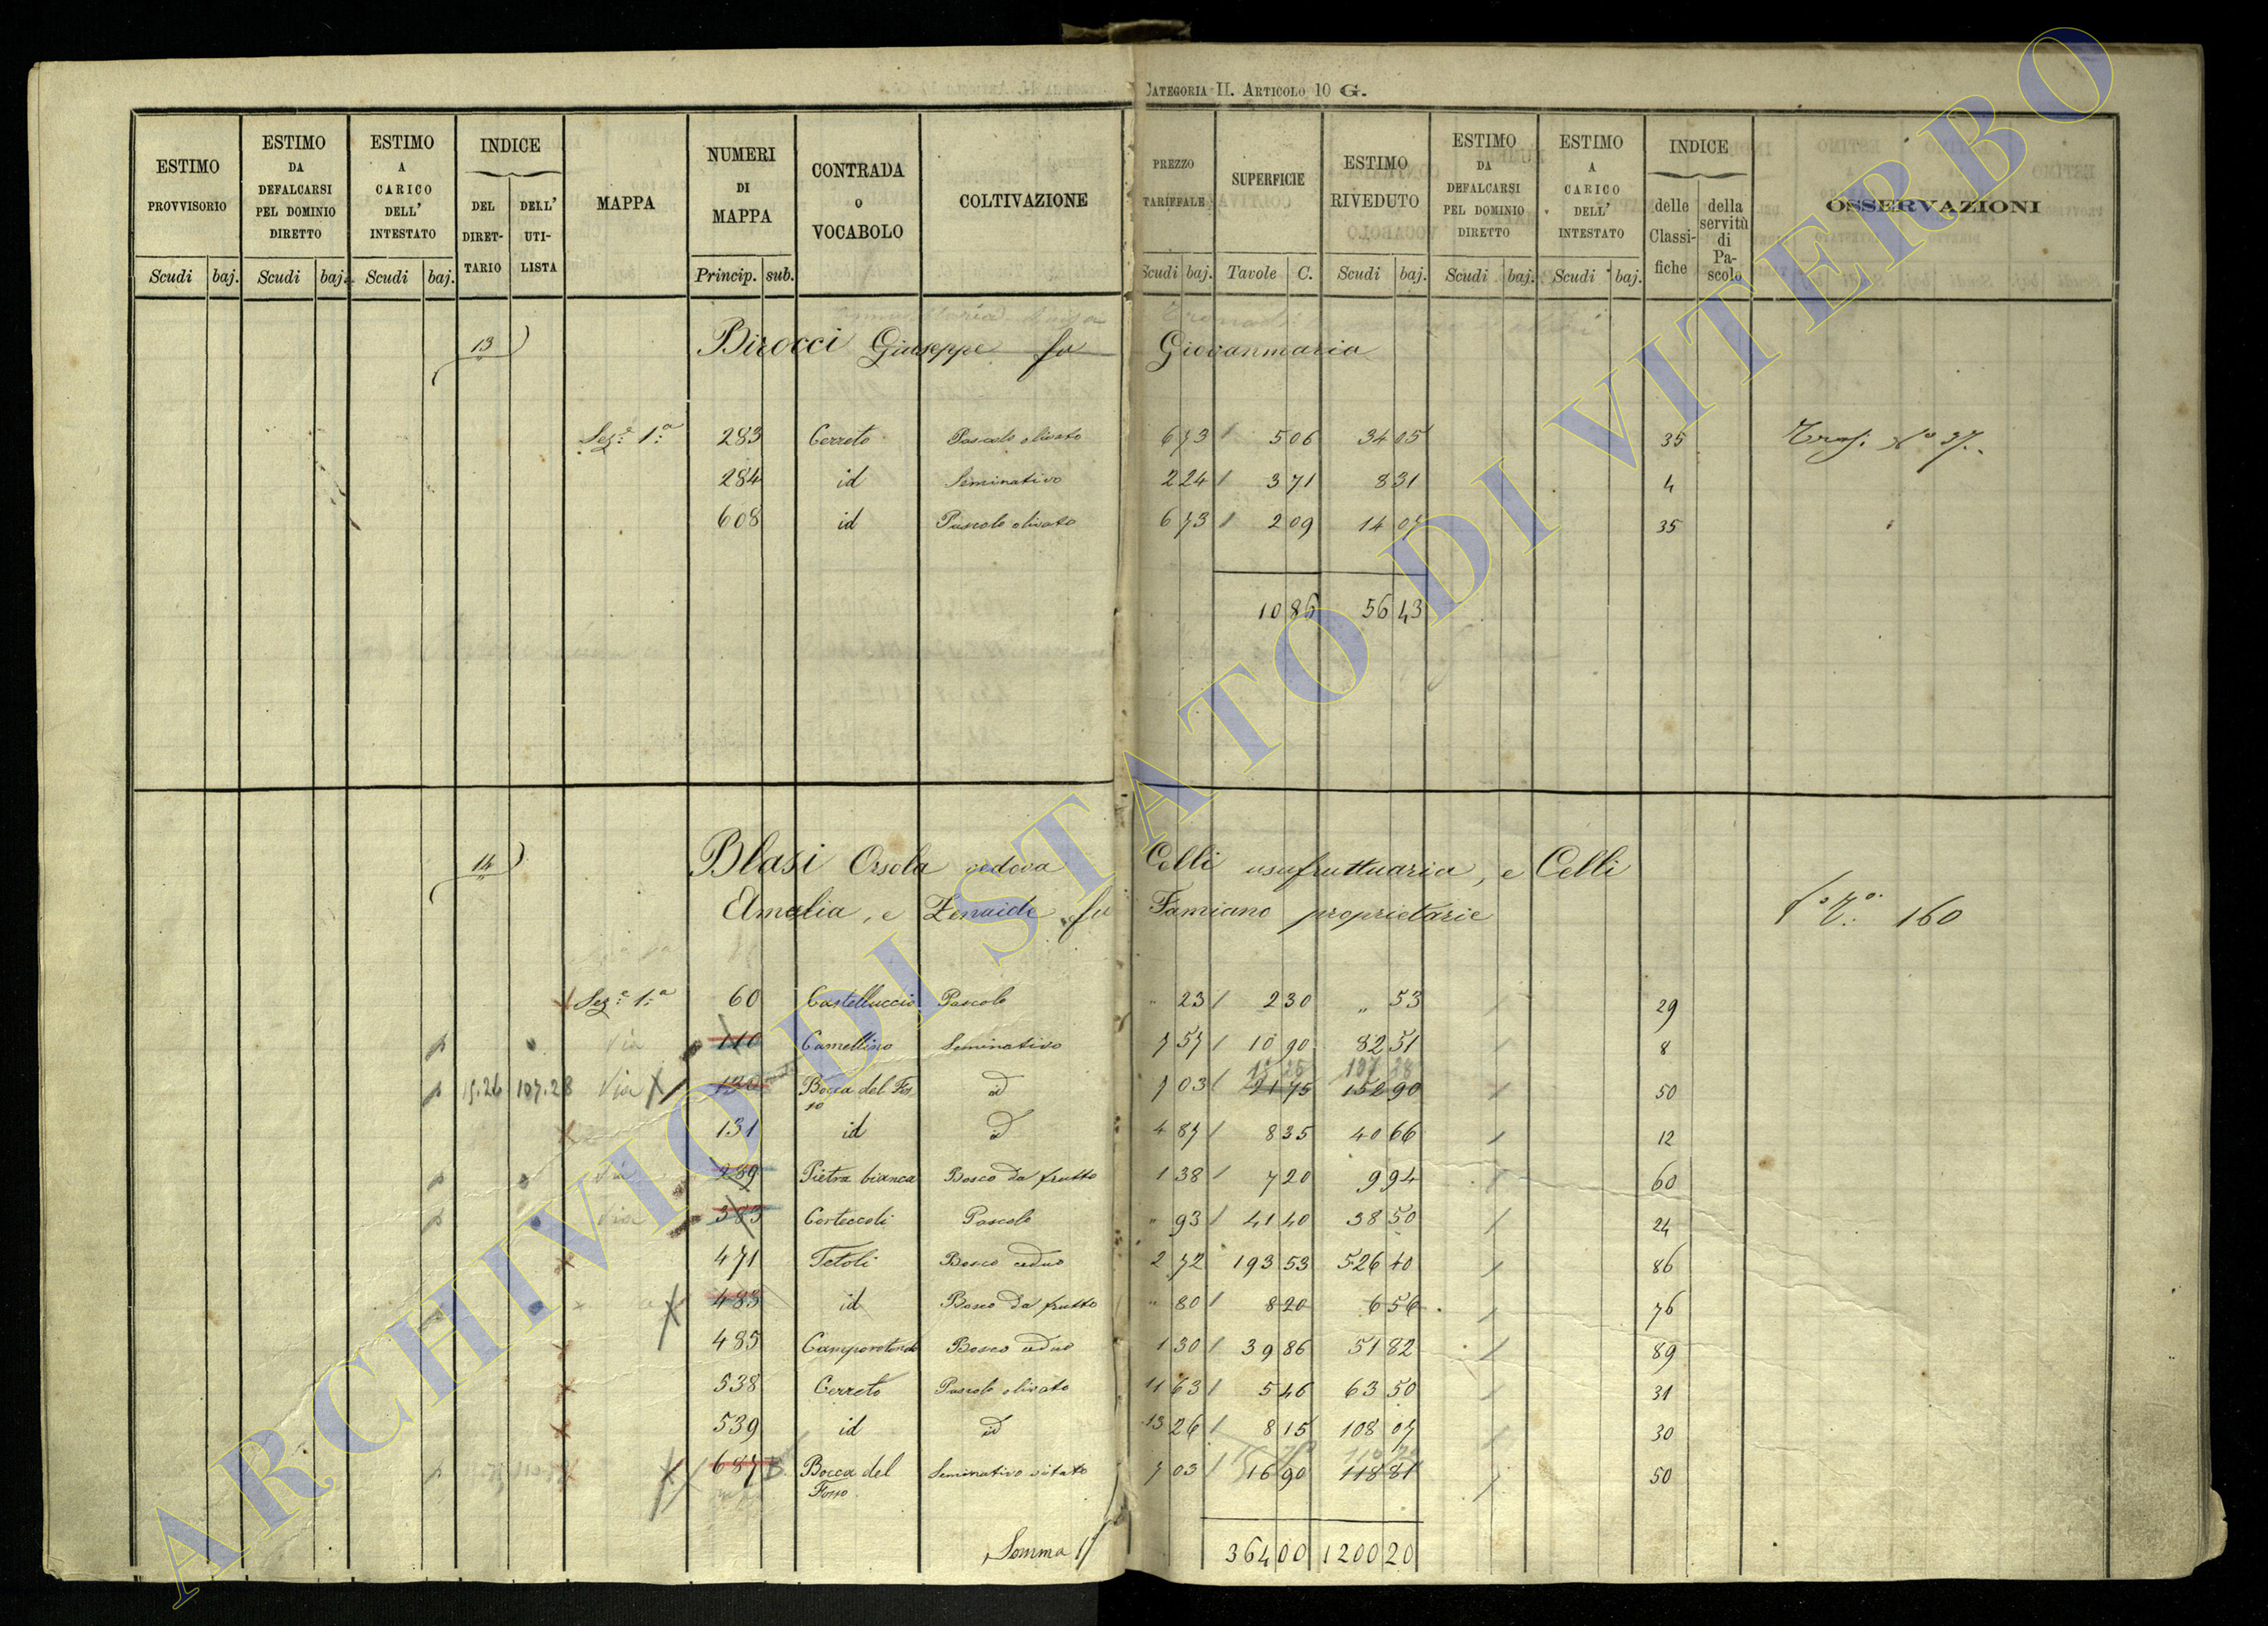 CATEGORIA II. ARTICOLO 10 G.
ESTIMO PROVVISORIO Scudi baj.
ESTIMO DA DEFALCARSI PEL DOMINIO DIRETTO Scudi baj.
ESTIMO A CARICO DELL' INTESTATO Scudi baj.
INDICE DEL DIRET-TARIO DELL' UTI-LISTA
MAPPA
NUMERI DI MAPPA Princip. sub.
CONTRADA o VOCABOLO
COLTIVAZIONE
PREZZO TARIFFALE Scudi baj.
SUPERFICIE Tavole C.
ESTIMO RIVEDUTO Scudi baj.
ESTIMO DA DEFALCARSI PEL DOMINIO DIRETTO Scudi baj.
ESTIMO A CARICO DELL' INTESTATO Scudi baj.
INDICE delle Classi-fiche della servitù di Pa-scolo
OSSERVAZIONI
13 Birocci Giuseppe fu Giovanmaria
Sez.e 1.a 283 Cerreto Pascolo olivato 6 73 5 06 34 05 35 Tras. No 37.
284 id Seminativo 2 24 3 71 8 31 4
608 id Pascolo olivato 6 73 2 09 14 07 35
10 86 56 43
14 Blasi Orsola vedova Celli usufruttuaria, e Celli
Amalia, e Zenaide fu Famiano proprietarie 160
Sez.e 1.a 60 Castelluccio Pascolo " 23 2 30 " 53 29
Via 110 Camellino Seminativo 7 57 10 90 82 51 8
15.26 107.28 Via 130 Bocca del Fos-so id 7 03 21 75 152 90 50
131 id id 4 87 8 35 40 66 12
Via 289 Pietra bianca Bosco da frutto 1 38 7 20 9 94 60
Via 383 Corteccoli Pascolo " 93 41 40 38 50 24
471 Tetoli Bosco ceduo 2 72 193 53 526 40 86
483 id Bosco da frutto " 80 8 20 6 56 76
485 Camporotondo Bosco ceduo 1 30 39 86 51 82 89
538 Cerreto Pascolo olivato 11 63 5 46 63 50 31
539 id id 13 26 8 15 108 07 30
687 Bocca del Fosso Seminativo vitato 7 03 16 90 118 81 50
Somma 364 00 1200 20
ARCHIVIO DI STATO DI VITERBO